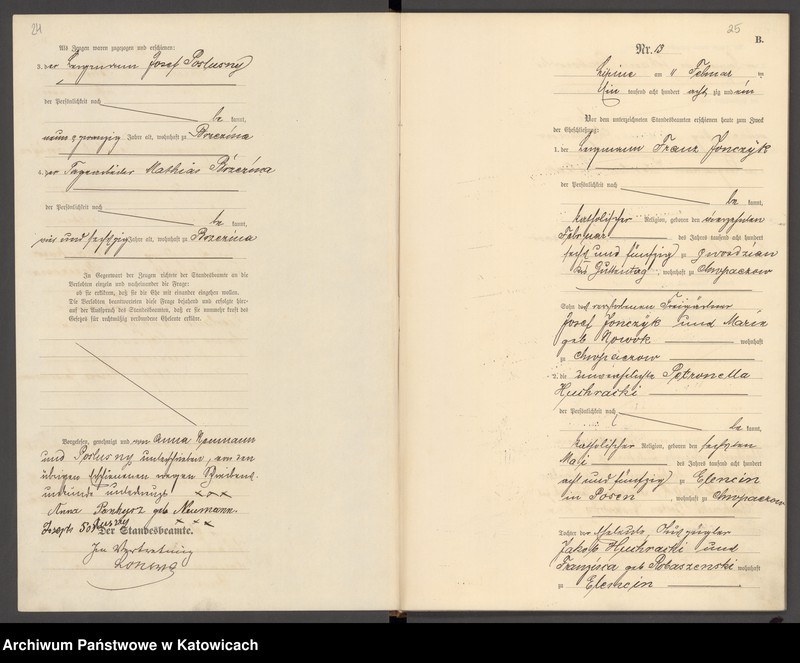 24
Als Zeugen waren zugezogen und erschienen:
3. der Bergmann Josef Poslusny
der Persönlichkeit nach
be kannt,
neun u zwanzig Jahre alt, wohnhaft zu Brzezina
4. der Tagearbeiter Mathias Brzezina
der Persönlichkeit nach
be kannt,
vier und sechszig Jahre alt, wohnhaft zu Brzezina
In Gegenwart der Zeugen richtete der Standesbeamte an die
Verlobten einzeln und nacheinander die Frage:
ob sie erklären, daß sie die Ehe mit einander eingehen wollen.
Die Verlobten beantworteten diese Frage bejahend und erfolgte hier-
auf der Ausspruch des Standesbeamten, daß er sie nunmehr kraft des
Gesetzes für rechtmäßig verbundene Eheleute erkläre.
Vorgelesen, genehmigt und von Anna Neumann
und Poslusny unterschrieben, von den
übrigen Erschienenen wegen Schreibens
unkunde unterkreuzt xxx
Anna geb Neumann
xxx
Der Standesbeamte.
In Vertretung
25
B.
Nr. 13
Lipine am 11 Februar
Ein tausend acht hundert acht zig und ein
Vor dem unterzeichneten Standesbeamten erschienen heute zum Zweck
der Eheschließung:
1. der Bergmann Franz Jonczyk
der Persönlichkeit nach
be kannt,
katholischer Religion, geboren den vierzehnten
Februar des Jahres tausend acht hundert
sechs und fünfzig zu Gwosdzian
Krs Guttentag, wohnhaft zu Chropaczow
Sohn des verstorbenen Freigärtner
Josef Jonczyk und Marie
geb Nowok wohnhaft
zu Chropaczow
2. die unverehelichte Petronella
Huchracki
der Persönlichkeit nach
be kannt,
katholischer Religion, geboren den sechsten
Mai des Jahres tausend acht hundert
acht und fünfzig zu Elencin
in Posen, wohnhaft zu Chropaczow
Tochter der
Jakob Huchracki und
Franziska geb Pobaszenski wohnhaft
zu Elencin
Archiwum Państwowe w Katowicach